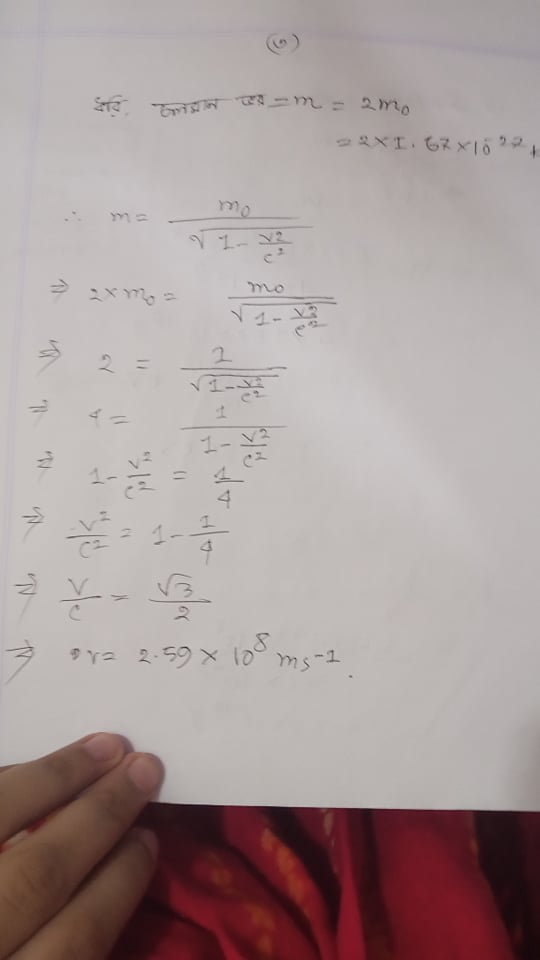 (৩)
ধরি, চলমান ভর = m = 2m₀
= 2×1.67×10⁻²⁷
∴ m = m₀ / √(1 - v²/c²)
⇒ 2×m₀ = m₀ / √(1 - v²/c²)
⇒ 2 = 1 / √(1 - v²/c²)
⇒ 4 = 1 / (1 - v²/c²)
⇒ 1 - v²/c² = 1/4
⇒ v²/c² = 1 - 1/4
⇒ v/c = √3/2
⇒ v = 2.59 × 10⁸ ms-1.